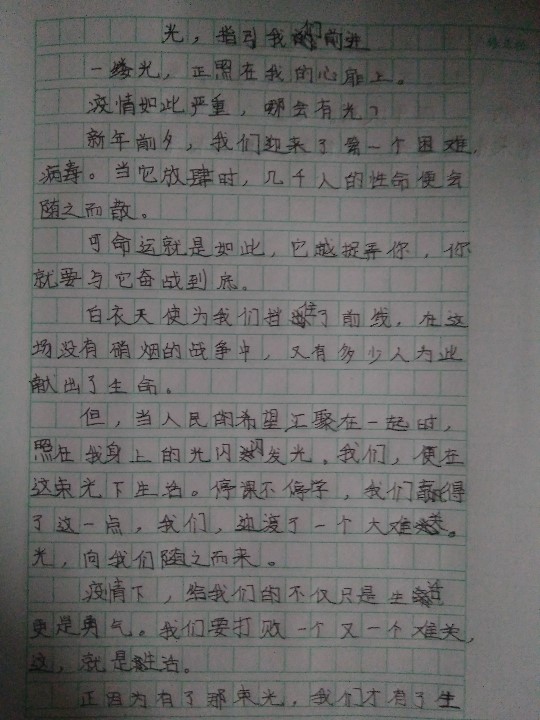 光，指引我们前进
一缕光，正照在我的心扉上。
疫情如此严重，哪会有光？
新年前夕，我们迎来了第一个困难，
病毒。当它放肆时，几千人的性命便会
随之而散。
可命运就是如此，它越捉弄你，你
就要与它奋战到底。
白衣天使为我们挡住了前线，在这
场没有硝烟的战争中，又有多少人为此
献出了生命。
但，当人民的希望汇聚在一起时，
照在我身上的光闪闪发光。我们，便在
这束光下生活。停课不停学，我们赢得
了这一点，我们，迎渡了一个大难关。
光，向我们随之而来。
疫情下，给我们的不仅只是生活
更是勇气。我们要打败一个又一个难关，
这，就是生活。
正因为有了那束光，我们才有了生